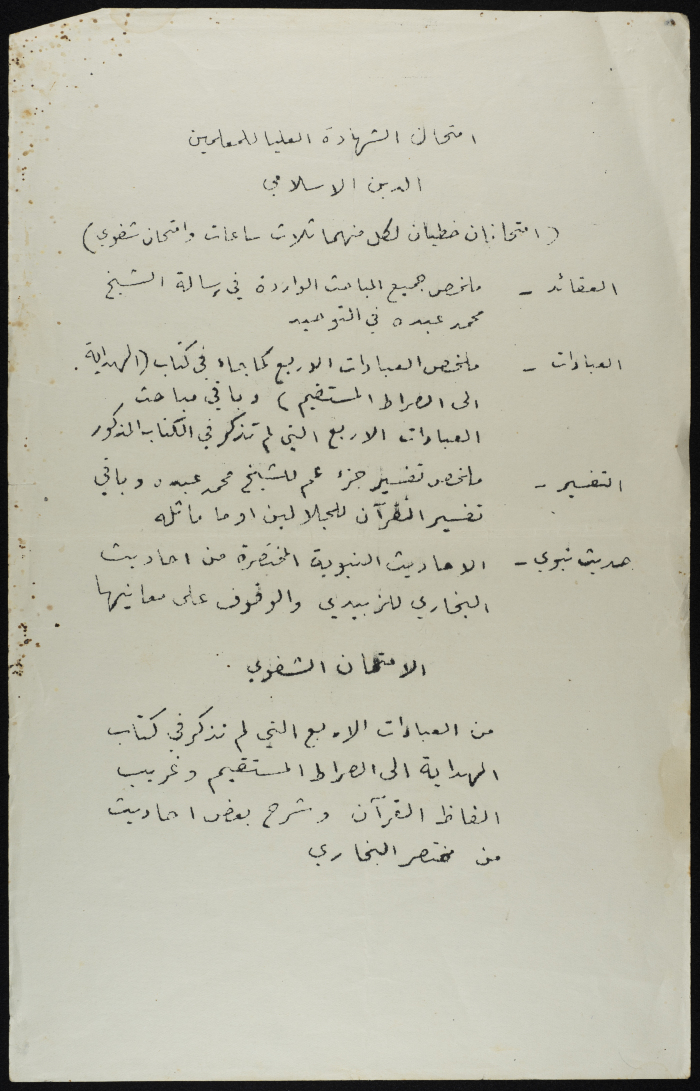 امتحان الشهادة العليا للمعلمين
الدين الاسلامي
(امتحانان خطيان لكل منهما ثلاث ساعات وامتحان شفوي)
العقائد - ملخص جميع المباحث الواردة في رسالة الشيخ
محمد عبده في التوحيد
العبادات - ملخص العبادات الاربع كما جاء في كتاب (الهداية
الى الصراط المستقيم) وباقي مباحث
العبادات الاربع التي لم تذكر في الكتاب المذكور
التفسير - ملخص تفسير جزء عم للشيخ محمد عبده وباقي
تفسير القرآن للجلالين او ما ماثله
حديث نبوي - الاحاديث النبوية المختصرة من احاديث
البخاري للزبيدي والوقوف على معانيها
الامتحان الشفوي.
من العبادات الاربع التي لم تذكر في كتاب
الهداية الى الصراط المستقيم وغريب
الفاظ القرآن وشرح بعض احاديث
من مختصر البخاري